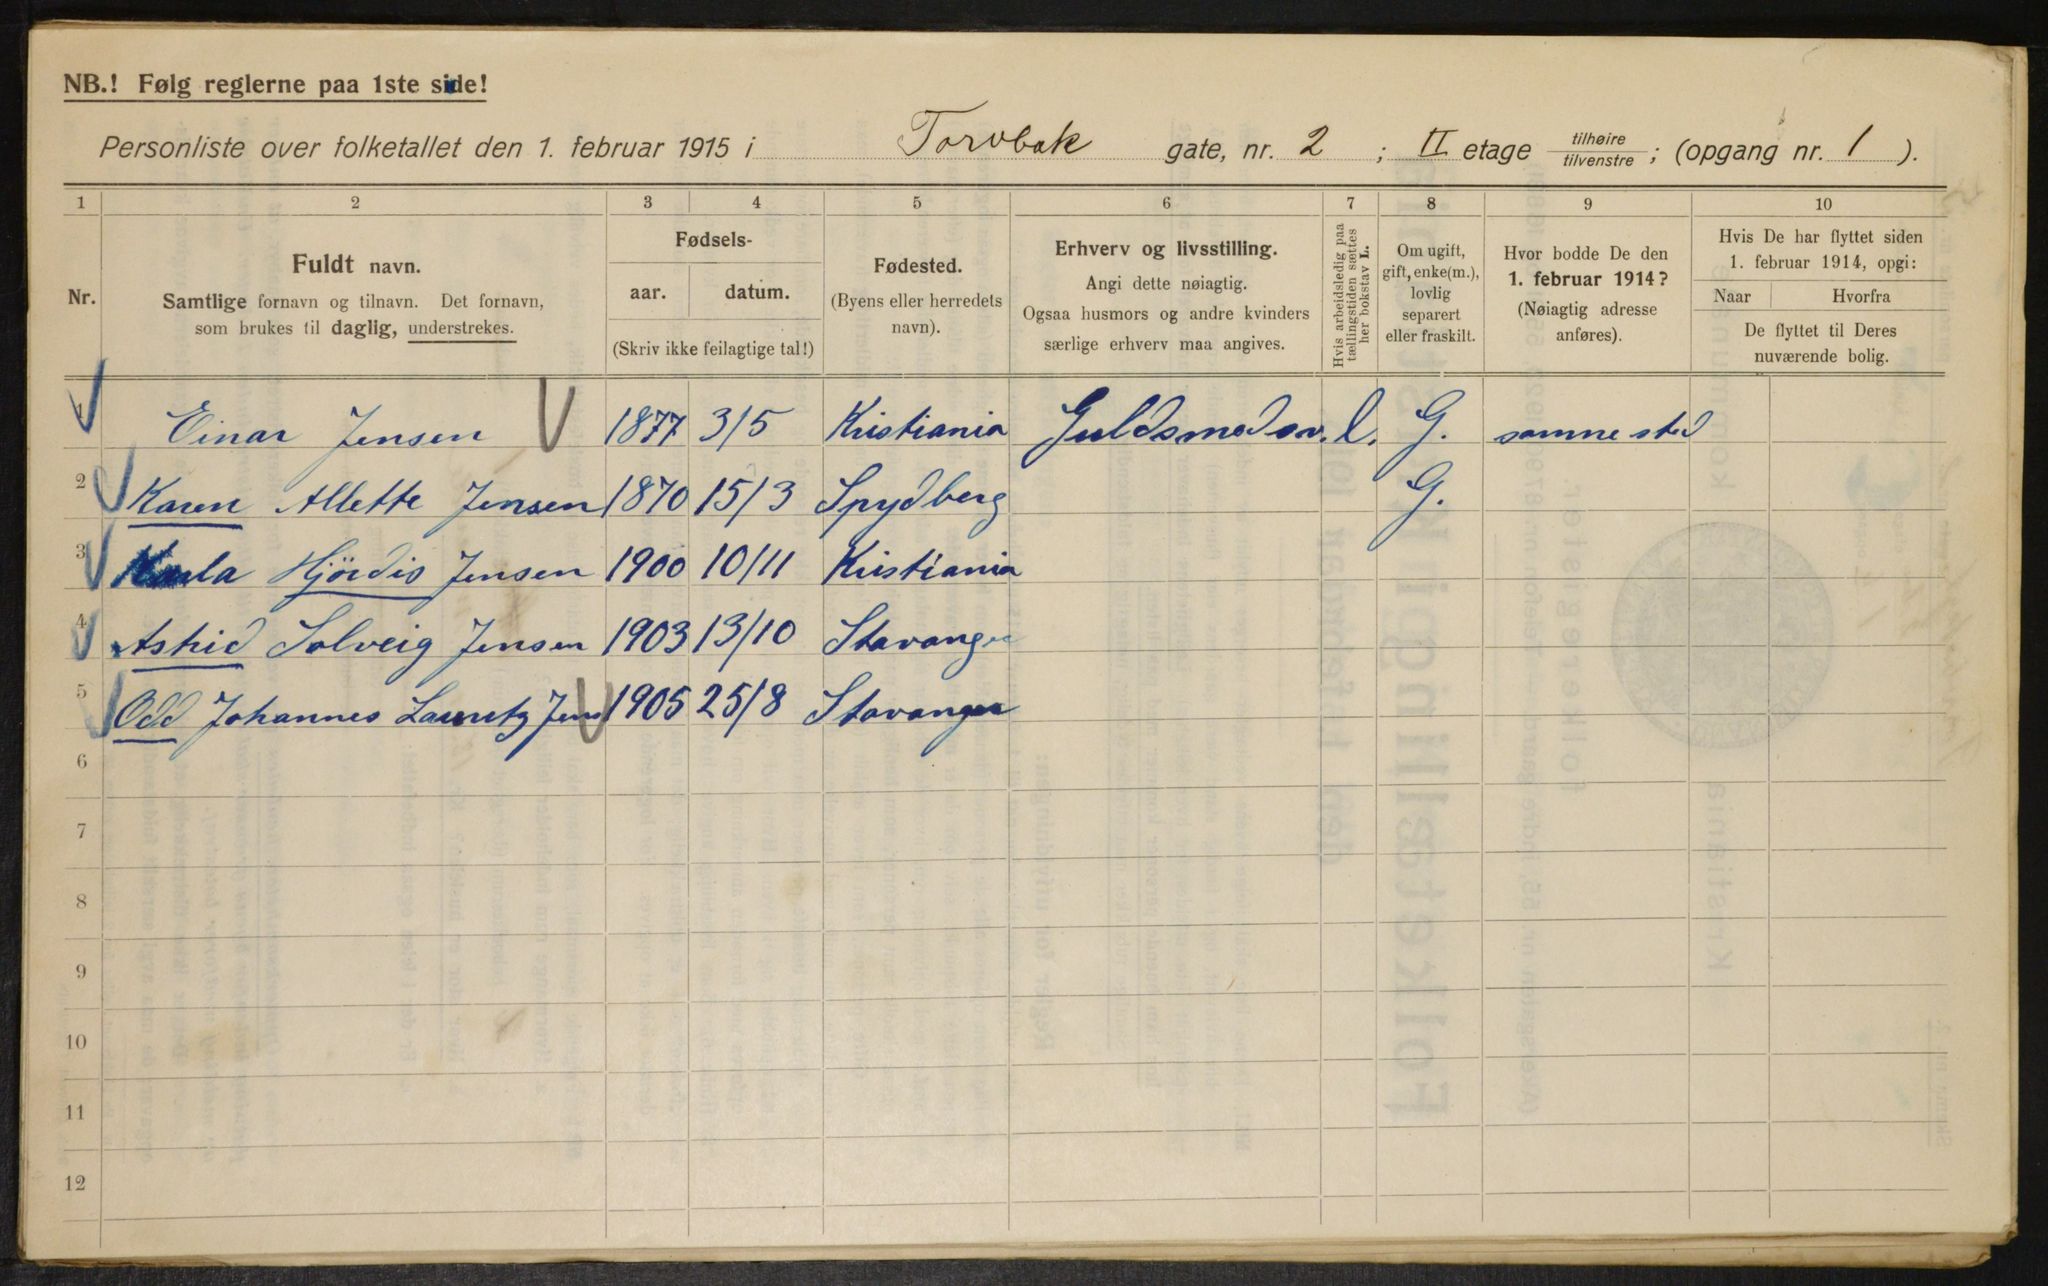 NB.! Følg reglerne paa 1ste side!
Personliste over folketallet den 1. februar 1915 i Torvbak gate, nr. 2 ; II etage tilhøire / tilvenstre ; (opgang nr. 1 ).
1 2 3 4 5 6 7 8 9 10
Nr.
Fuldt navn.
Samtlige fornavn og tilnavn. Det fornavn,
som brukes til daglig, understrekes.
Fødsels-
aar. datum.
(Skriv ikke feilagtige tal!)
Fødested.
(Byens eller herredets
navn).
Erhverv og livsstilling.
Angi dette nøiagtig.
Ogsaa husmors og andre kvinders
særlige erhverv maa angives.
Hvis arbeidsledig paa
tællingstiden sættes
her bokstav L.
Om ugift,
gift, enke(m.),
lovlig
separert
eller fraskilt.
Hvor bodde De den
1. februar 1914?
(Nøiagtig adresse
anføres).
Hvis De har flyttet siden
1. februar 1914, opgi:
Naar Hvorfra
De flyttet til Deres
nuværende bolig.
1 Einar Jensen 1877 3/5 Kristiania Guldsmedsv. l. G. samme sted
2 Karen Allette Jensen 1870 15/3 Spydberg G.
3 Karla Hjördis Jensen 1900 10/11 Kristiania
4 Astrid Solveig Jensen 1903 13/10 Stavanger
5 Odd Johannes Lauritz Jens 1905 25/8 Stavanger
6
7
8
9
10
11
12